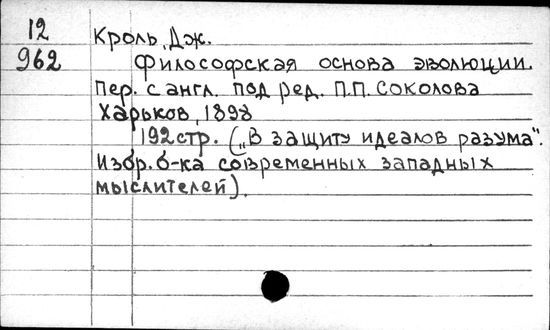 12
962
Кроль, Дж.
Философская основа эволюции.
Пер. с англ. под ред. П.П. Соколова
Харьков, 1898
192 стр. („В защиту идеалов разума".
Избр. б-ка современных западных
мыслителей).